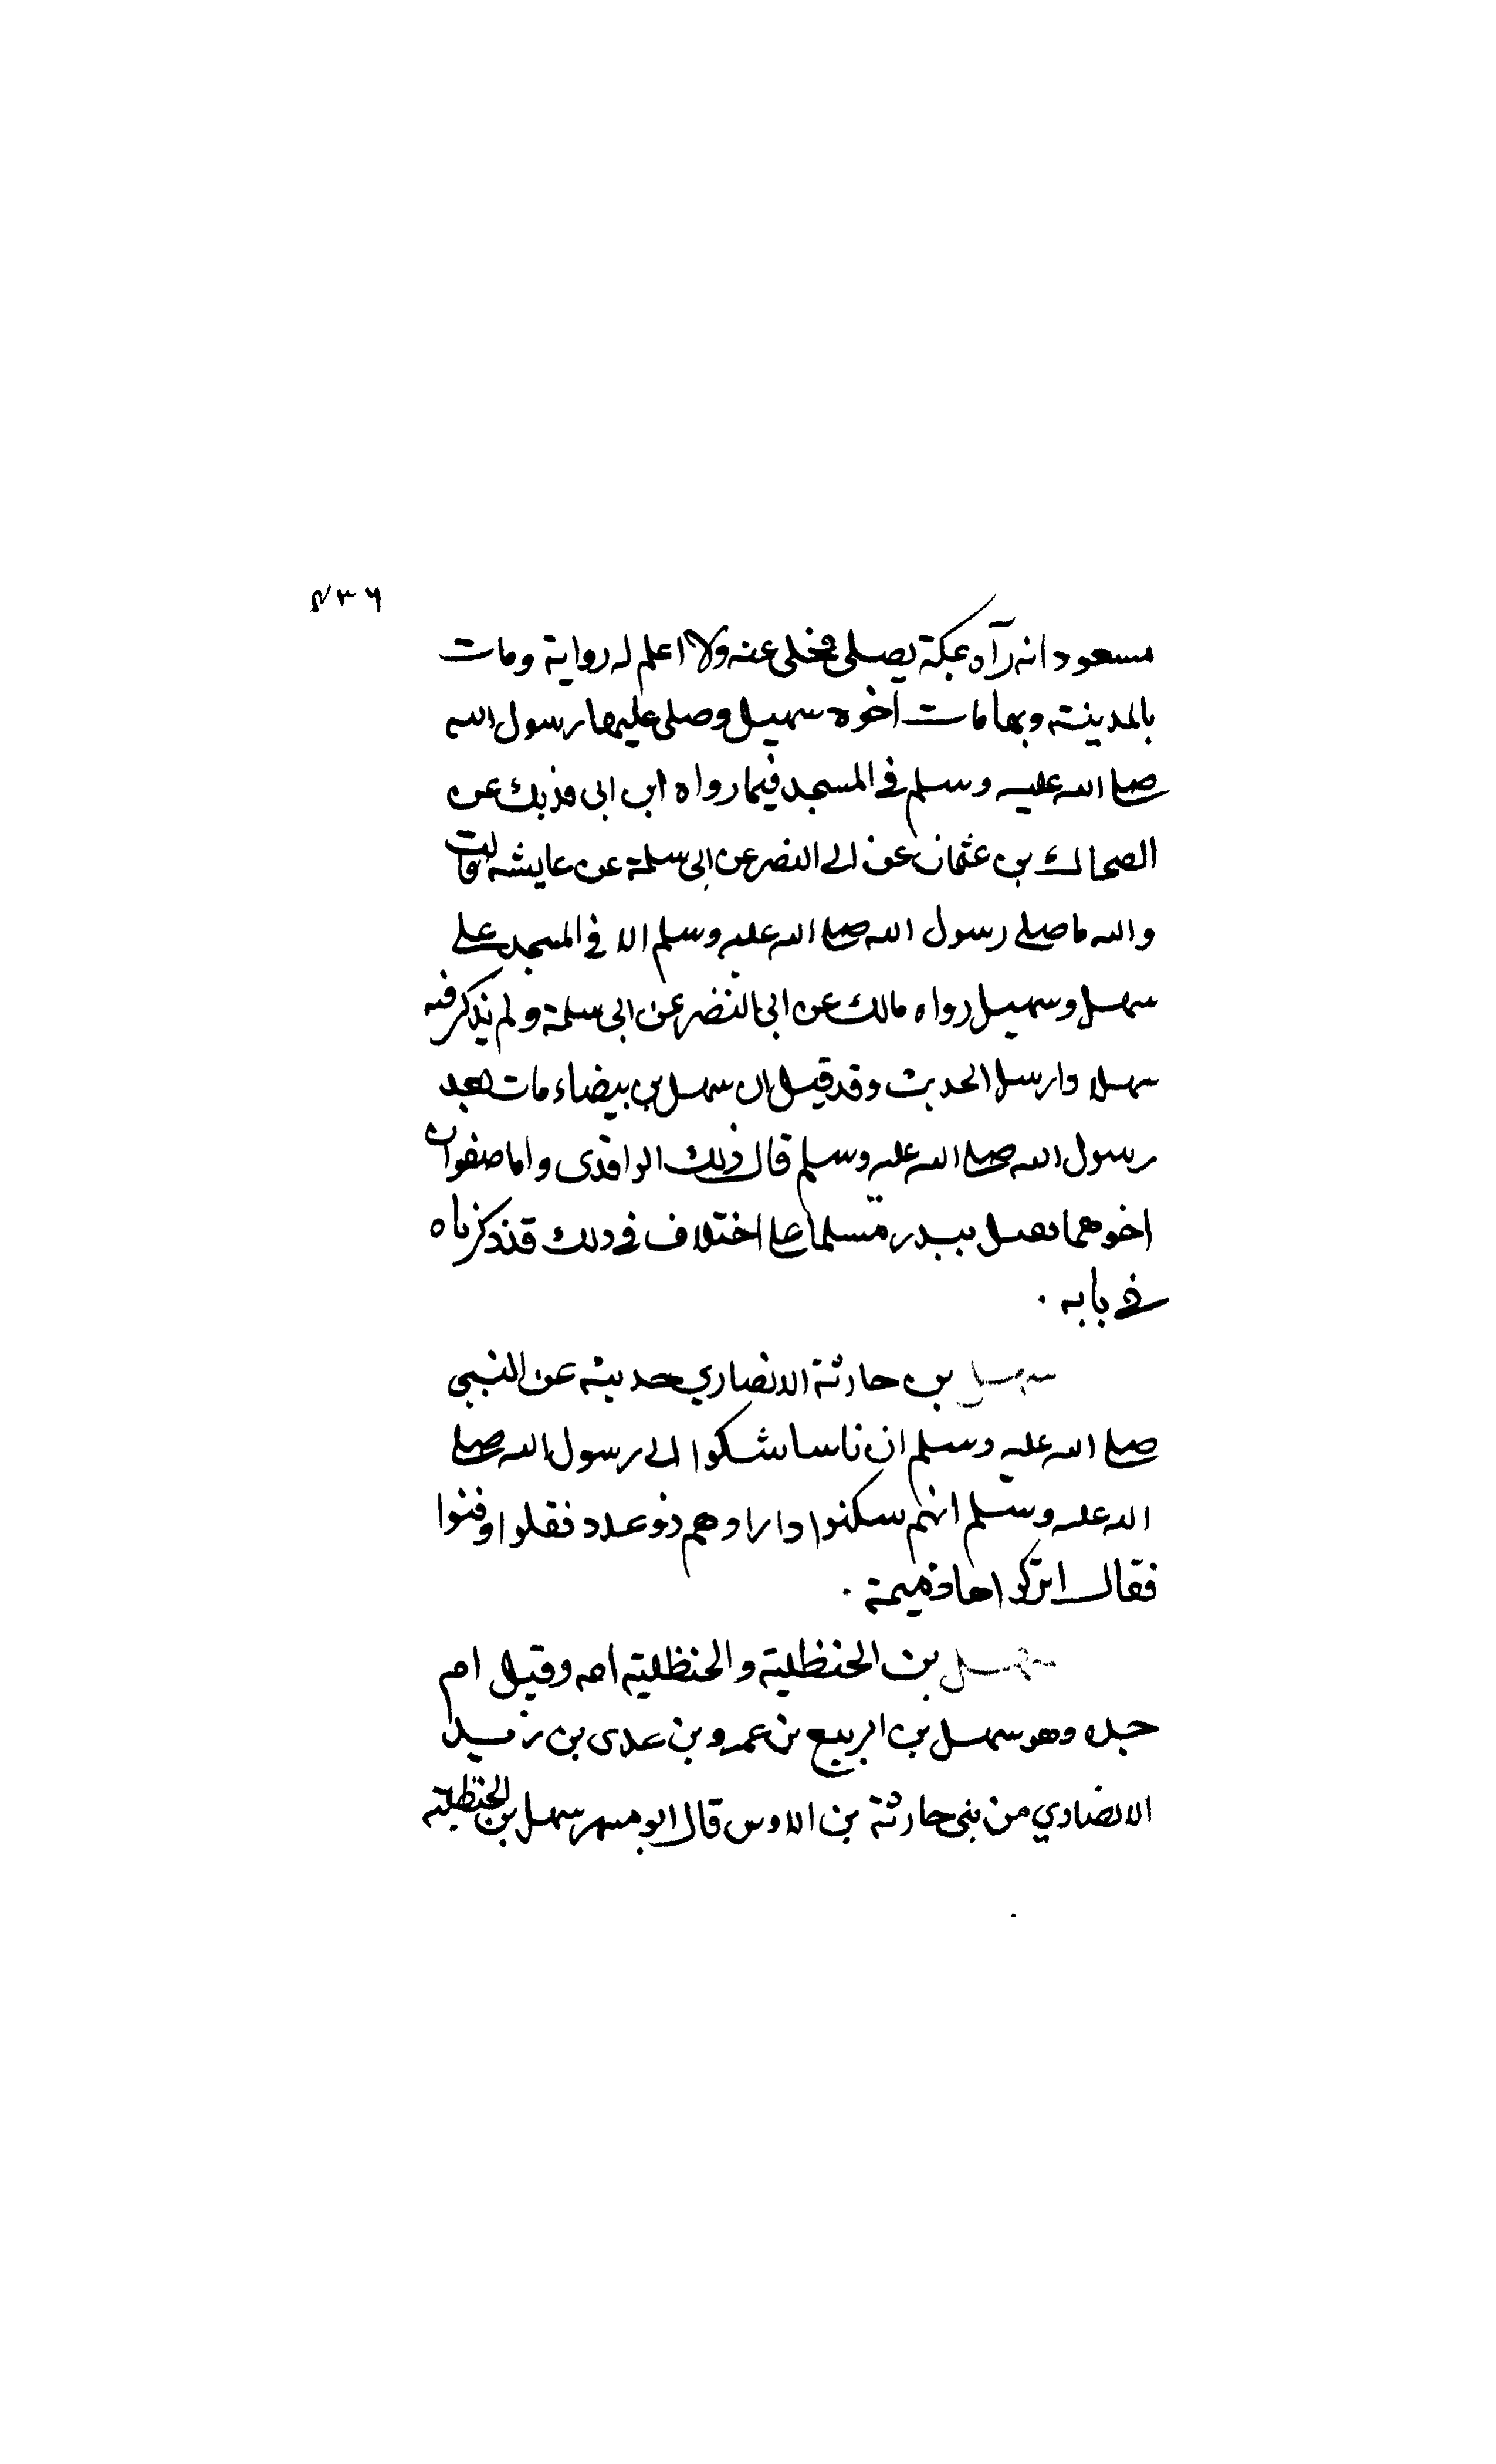 ٤٣٦
مسعود انه رآه بمكة يصلي فخلى عنه ولا اعلم له رواية ومات
بالمدينة وبها مات اخوه سهيل وصلى عليهما رسول الله
صلى الله عليه وسلم في المسجد فيما رواه ابن ابى فديك عن
الضحاك بن عثمان عن ابى النضر عن ابى سلمة عن عايشه قالت
والله ما صلى رسول الله صلى الله عليه وسلم الا في المسجد على
سهل وسهيل رواه مالك عن ابى النضر عن ابى سلمة ولم يذكر فيه
سهلا وارسل الحديث وقد قيل ان سهل بن بيضاء مات بعد
رسول الله صلى الله عليه وسلم قال ذلك الواقدى واما صفوان
اخوهما فقتل ببدر مسلما على اختلاف في ذلك قد ذكرناه
في بابه .
سهل بن حارثة الانصاري حديثه عن النبي
صلى الله عليه وسلم ان ناسا شكوا الى رسول الله صلى
الله عليه وسلم انهم سكنوا دارا وهم ذو عدد فقلوا وفنوا
فقال اتركوها ذميمة .
سهل بن الحنظلية والحنظلية امه وقيل ام
جده وهو سهل بن الربيع بن عمرو بن عدى بن زيد
الانصاري من بنى حارثة بن الاوس قال ابو مسهر سهل بن الحنظلية